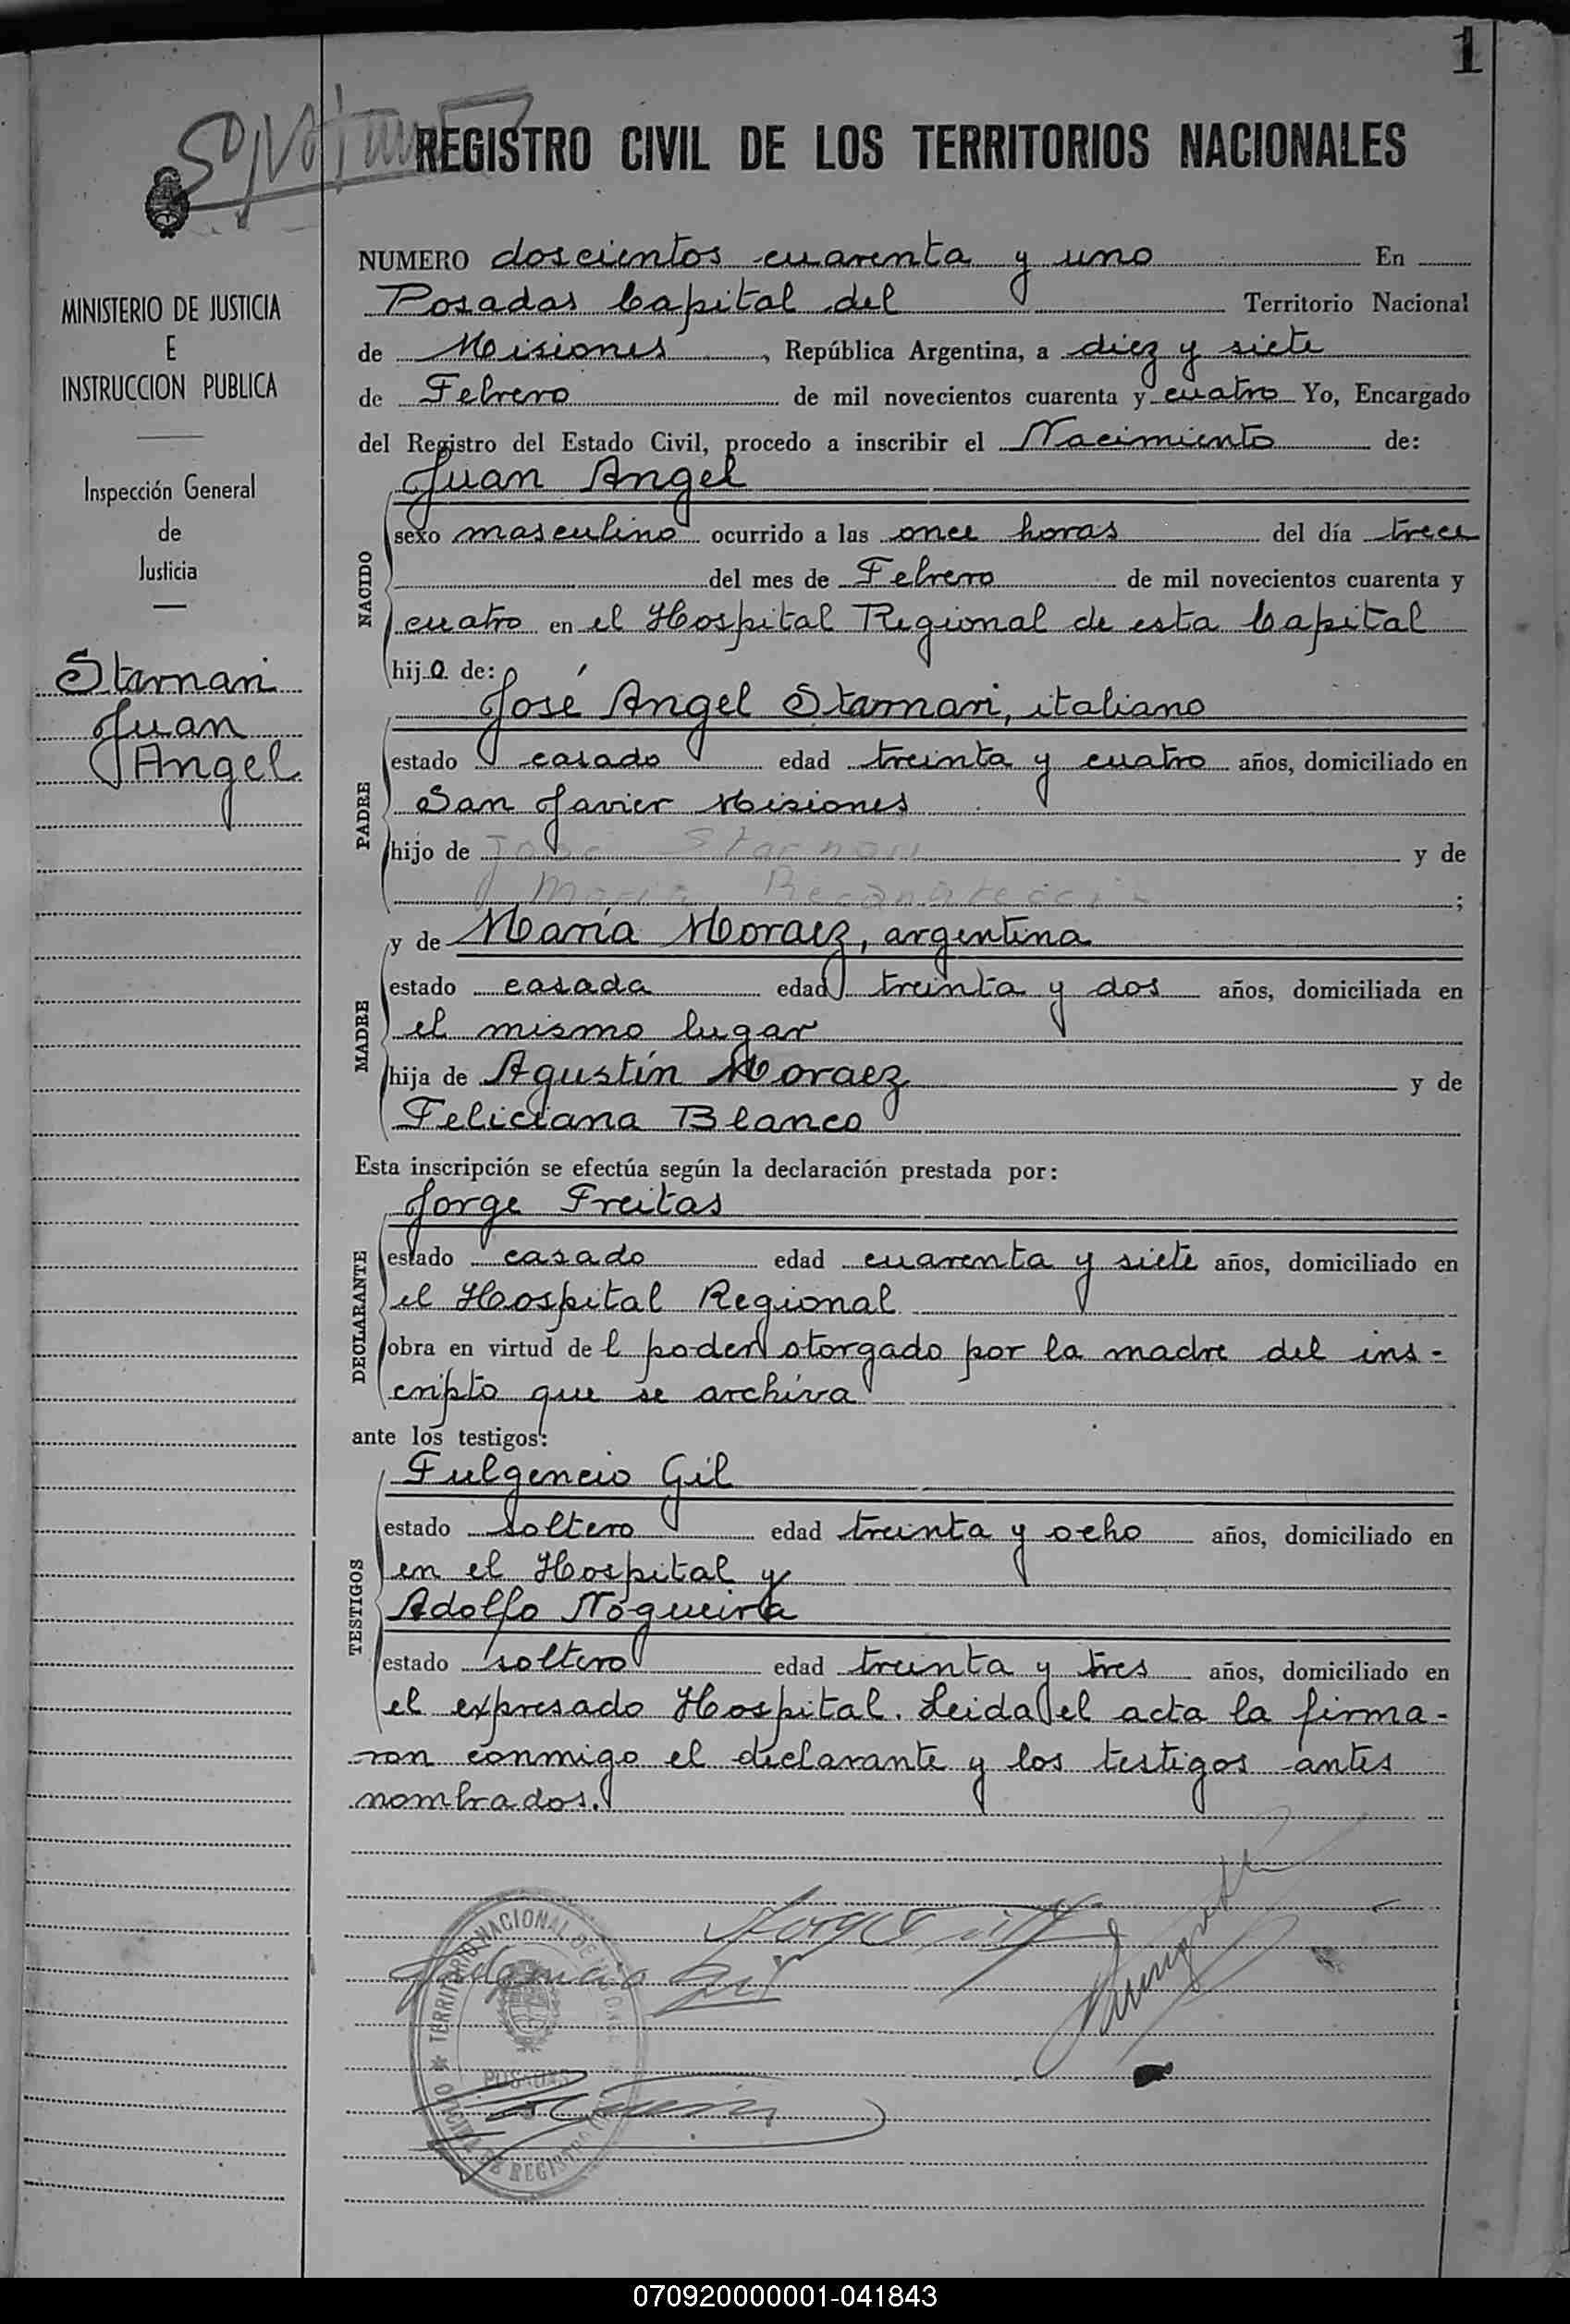 1
REGISTRO CIVIL DE LOS TERRITORIOS NACIONALES
MINISTERIO DE JUSTICIA
E
INSTRUCCION PUBLICA
Inspección General
de
Justicia
Starnari
Juan
Angel
NUMERO doscientos cuarenta y uno En
Posadas Capital del Territorio Nacional
de Misiones, República Argentina, a diez y siete
de Febrero de mil novecientos cuarenta y cuatro Yo, Encargado
del Registro del Estado Civil, procedo a inscribir el Nacimiento de:
NACIDO
Juan Angel
sexo masculino ocurrido a las once horas del día trece
del mes de Febrero de mil novecientos cuarenta y
cuatro en el Hospital Regional de esta Capital
hijo de:
PADRE
José Angel Starnari, italiano
estado casado edad treinta y cuatro años, domiciliado en
San Javier Misiones
hijo de Jose Starnari y de
Maria ;
MADRE
y de María Moraez, argentina
estado casada edad treinta y dos años, domiciliada en
el mismo lugar
hija de Agustín Moraez y de
Feliciana Blanco
Esta inscripción se efectúa según la declaración prestada por:
DECLARANTE
Jorge Freitas
estado casado edad cuarenta y siete años, domiciliado en
el Hospital Regional
obra en virtud del poder otorgado por la madre del ins-
cripto que se archiva
ante los testigos:
TESTIGOS
Fulgencio Gil
estado soltero edad treinta y ocho años, domiciliado en
en el Hospital y
Adolfo Nogueira
estado soltero edad treinta y tres años, domiciliado en
el expresado Hospital. Leida el acta la firma-
ron conmigo el declarante y los testigos antes
nombrados.
Fulgencio Gil
TERRITORIO NACIONAL DE MISIONES
POSADAS
OFICINA DE REGISTRO
070920000001-041843